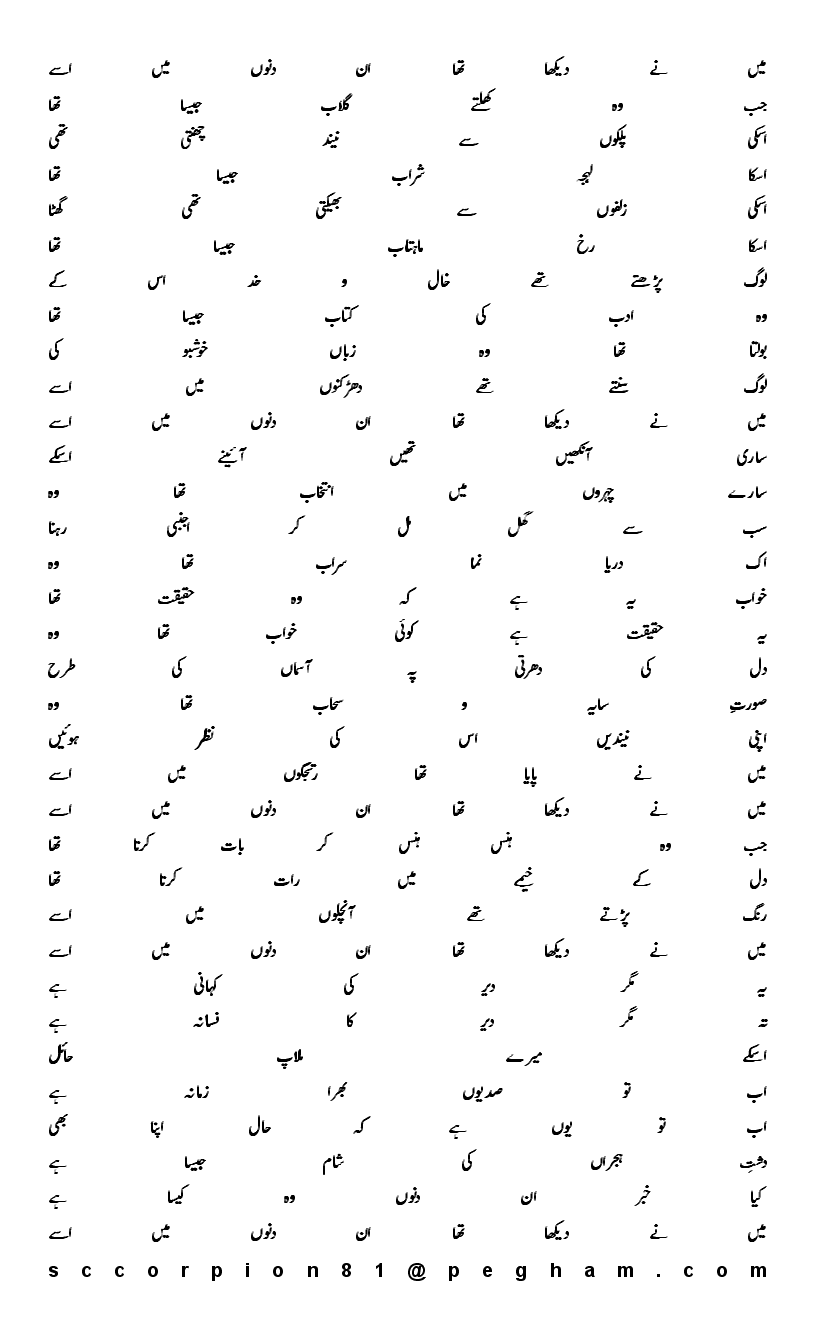 میں نے دیکھا تھا ان دنوں میں اسے
جب وہ کھلتے گلاب جیسا تھا
اسکی پلکوں سے نیند چھنتی تھی
اسکا لہجہ شراب جیسا تھا
اسکی زلفوں سے بھیگتی تھی گھٹا
اسکا رخ ماہتاب جیسا تھا
لوگ پڑھتے تھے خال و خد اس کے
وہ ادب کی کتاب جیسا تھا
بولتا تھا وہ زباں خوشبو کی
لوگ سنتے تھے دھڑکنوں میں اسے
میں نے دیکھا تھا ان دنوں میں اسے
ساری آنکھیں تھیں آئینے اسکے
سارے چہروں میں انتخاب تھا وہ
سب سے گھل مل کر اجنبی رہنا
اک دریا نما سراب تھا وہ
خواب یہ ہے کہ وہ حقیقت تھا
یہ حقیقت ہے کوئی خواب تھا وہ
دل کی دھرتی پہ آسماں کی طرح
صورتِ سایہ و سحاب تھا وہ
اپنی نیندیں اس کی نظر ہوئیں
میں نے پایا تھا رتجگوں میں اسے
میں نے دیکھا تھا ان دنوں میں اسے
جب وہ ہنس ہنس کر بات کرتا تھا
دل کے خیمے میں رات کرتا تھا
رنگ پڑتے تھے آنچلوں میں اسے
میں نے دیکھا تھا ان دنوں میں اسے
یہ مگر دیر کی کہانی ہے
یہ مگر دیر کا فسانہ ہے
اسکے میرے ملاپ حائل
اب تو صدیوں بھرا زمانہ ہے
اب تو یوں ہے کہ حال اپنا بھی
دشتِ ہجراں کی شام جیسا ہے
کیا خبر ان دنوں وہ کیسا ہے
میں نے دیکھا تھا ان دنوں میں اسے
sccorpion81@pegham.com